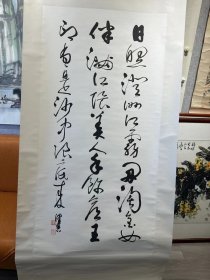 日照澄洲江雾开淘金女
伴满江隈美人首饰侯王
印尽是沙中浪底来